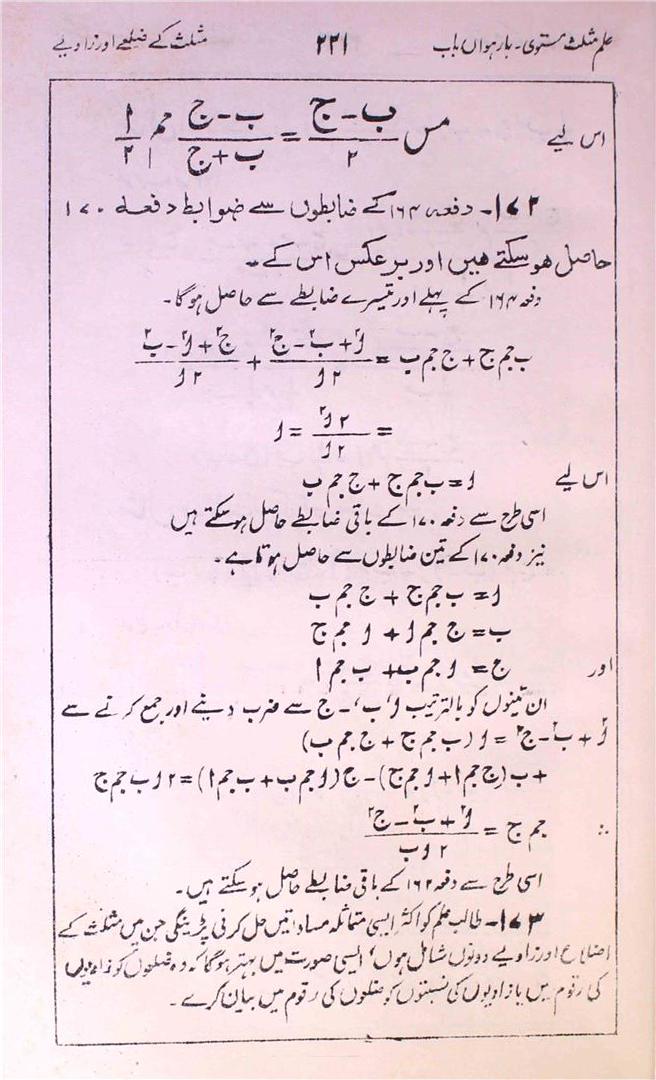 علم مثلث مستوی۔ بارھواں باب ۲۲۱ مثلث کے ضلعے اور زاویے
اس لیے مس (ب-ج)/۲ = (ب-ج)/(ب+ج) مم ا/۲
۱۷۲۔ دفعہ ۱۶۴ کے ضابطوں سے ضوابط دفعہ ۱۷۰
حاصل ہوسکتے ہیں اور برعکس اس کے۔
دفعہ ۱۶۴ کے پہلے اور تیسرے ضابطے سے حاصل ہوگا۔
ب جم ج + ج جم ب = (و۲ + ب۲ - ج۲)/(۲ و) + (ج۲ + و۲ - ب۲)/(۲ و)
= (۲ و۲)/(۲ و) = و
اس لیے و = ب جم ج + ج جم ب
اسی طرح سے دفعہ ۱۷۰ کے باقی ضابطے حاصل ہوسکتے ہیں
نیز دفعہ ۱۷۰ کے تین ضابطوں سے حاصل ہوتا ہے۔
و = ب جم ج + ج جم ب
ب = ج جم ا + و جم ج
اور ج = و جم ب + ب جم ا
ان تینوں کو بالترتیب و، ب، - ج سے ضرب دینے اور جمع کرنے سے
و۲ + ب۲ - ج۲ = و (ب جم ج + ج جم ب)
+ ب (ج جم ا + و جم ج) - ج (و جم ب + ب جم ا) = ۲ و ب جم ج
∴ جم ج = (و۲ + ب۲ - ج۲)/(۲ و ب)
اسی طرح سے دفعہ ۱۶۲ کے باقی ضابطے حاصل ہوسکتے ہیں۔
۱۷۳۔ طالب علم کو اکثر ایسی متماثلہ مساواتیں حل کرنی پڑینگی جن میں مثلث کے
اضلاع اور زاویے دونوں شامل ہوں، ایسی صورت میں بہتر ہوگا کہ وہ ضلعوں کو زاویوں
کی رقوم میں یا زاویوں کی نسبتوں کو ضلعوں کی رقوم میں بیان کرے۔